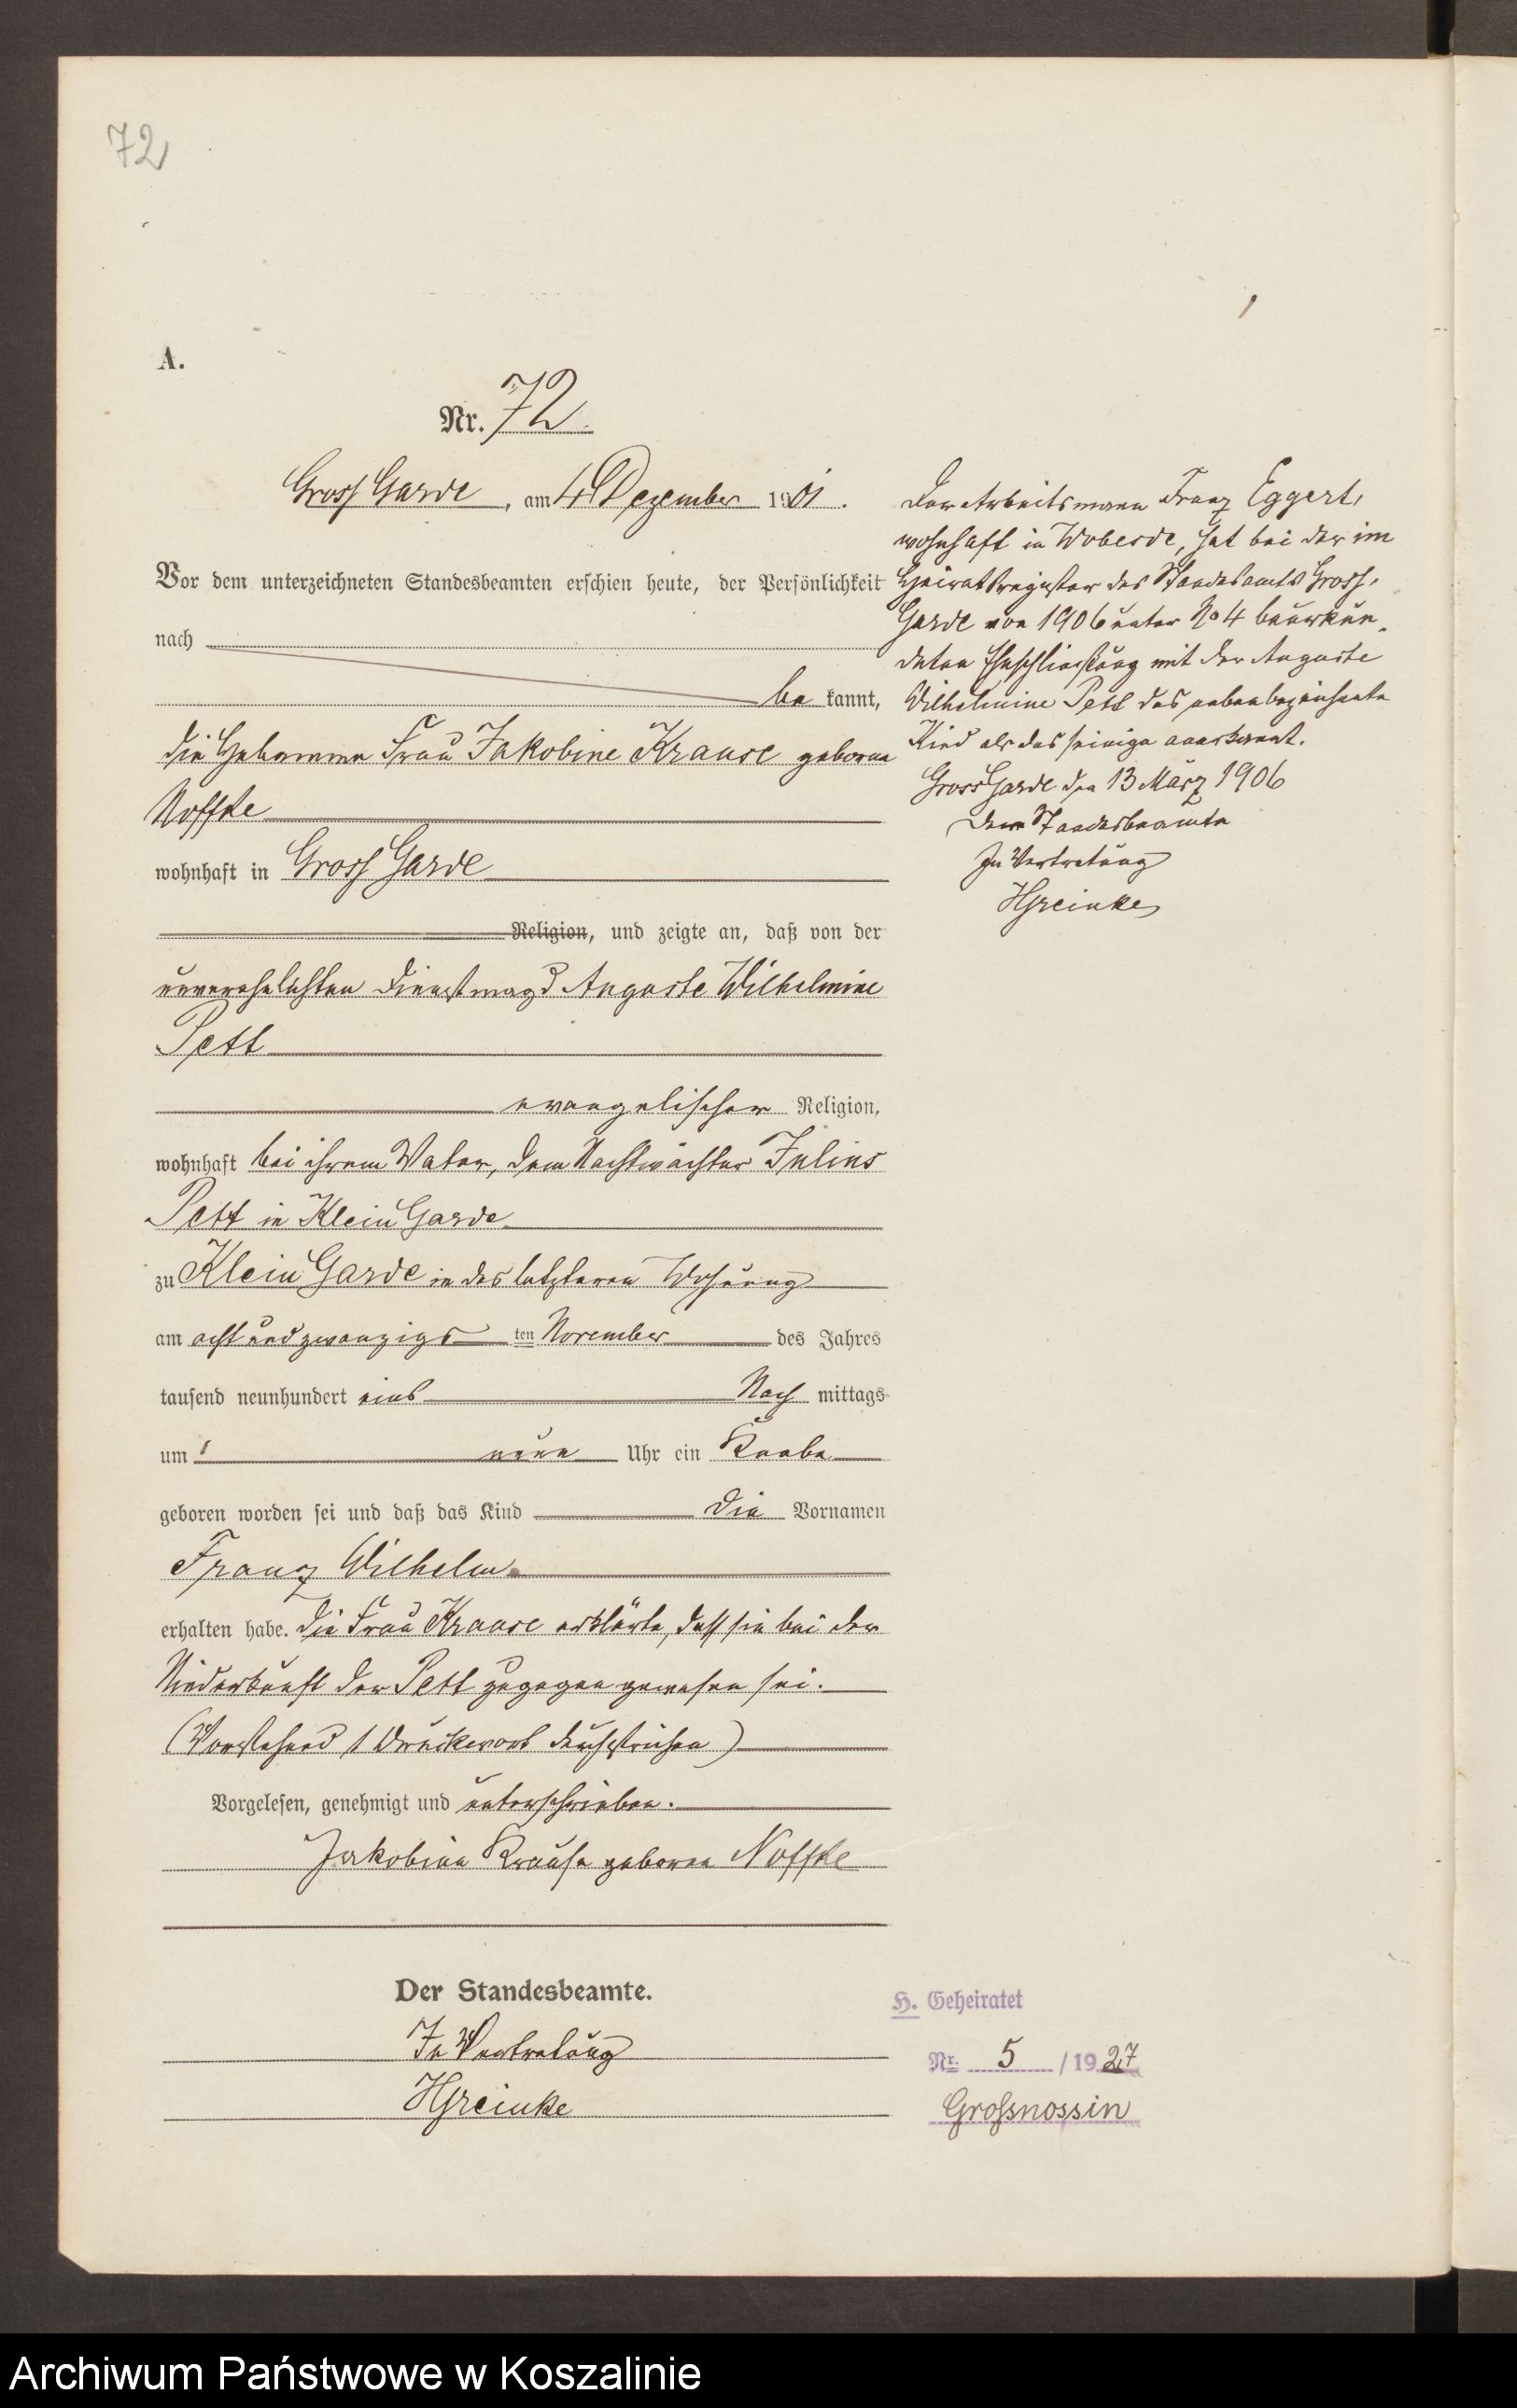 72
A.
Nr. 72.
Gross Garde, am 4 Dezember 1901.
Vor dem unterzeichneten Standesbeamten erschien heute, der Persönlichkeit
nach
be kannt,
die Hebamme Frau Jakobine Krause geborne
Noffke
wohnhaft in Gross Garde
Religion, und zeigte an, daß von der
unverehelichten Dienstmagd Auguste Wilhelmine
Pett
evangelischer Religion,
wohnhaft bei ihrem Vater, dem Nachtwächter Julius
Pett in Klein Garde
zu Klein Garde in des letzteren Wohnung
am acht und zwanzigs ten November des Jahres
tausend neunhundert eins Nach mittags
um neun Uhr ein Knabe
geboren worden sei und daß das Kind die Vornamen
Franz Wilhelm
erhalten habe. Die Frau Krause erklärte, dass sie bei der
Niederkunft der Pett zugegen gewesen sei.
(Vorstehend 1 Druckwort durchstrichen)
Vorgelesen, genehmigt und unterschrieben.
Jakobine Krause geborne Noffke
Der Standesbeamte.
In Vertretung
HGreinke
Der Arbeitsmann Franz Eggert,
wohnhaft in Wobesde, hat bei der im
Heiratsregister des Standesamts Gross-
Garde von 1906 unter No 4 beurkun-
deten Eheschliessung mit der Auguste
Wilhelmine Pett das nebenbezeichnete
Kind als das seinige anerkannt.
Gross Garde den 13 März 1906
Der Standesbeamte
In Vertretung
HGreinke
H. Geheiratet
Nr. 5 / 1927
Großnossin
Archiwum Państwowe w Koszalinie